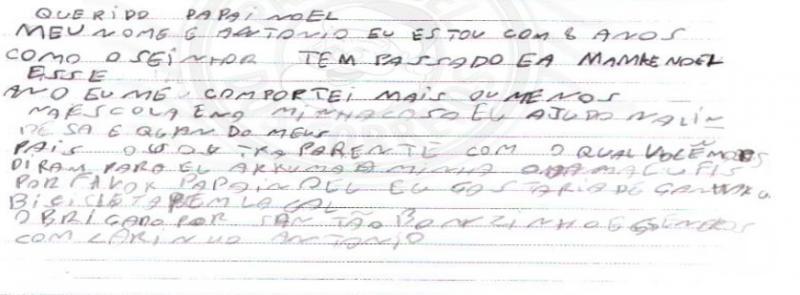 QUERIDO PAPAI NOEL
MEU NOME E ANTONIO EU ESTOU COM 8 ANOS
COMO O SEINHOR TEM PASSADO E A MAMAE NOEL
ESSE
ANO EU ME COMPORTEI MAIS OU MENOS
NA ESCOLA E NA MINHA CASA EU AJUDO NA LIN
PESA E QUANDO MEUS
PAIS PARENTE COM O QUAL
DIRAM PARA EU ARRUMA A MINHA CAMA EU FIS
POR FAVOR PAPAI NOEL EU GOSTARIA DE GANHAR U
BICICLETA BEM LAGAL
OBRIGADO POR TÃO BONZINHO
COM CARINHO ANTONIO